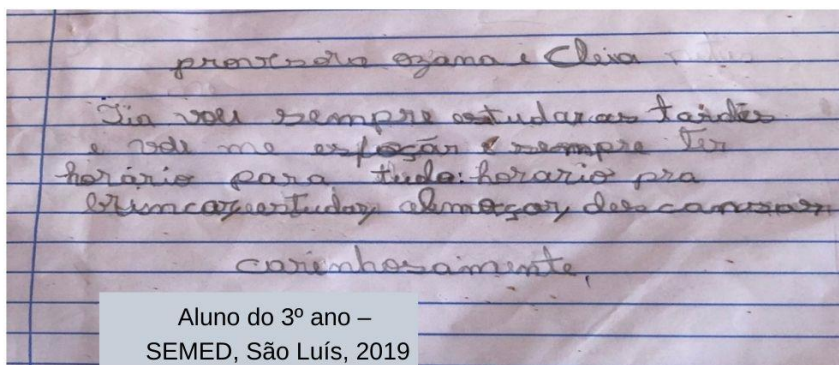 professora ozana e Cleia
Tia vou sempre estudar as tardes
e vou me esfoçar e sempre ter
horário para tudo: horario pra
brincar, estudar, almoçar, descansar
carinhosamente,
Aluno do 3º ano –
SEMED, São Luís, 2019